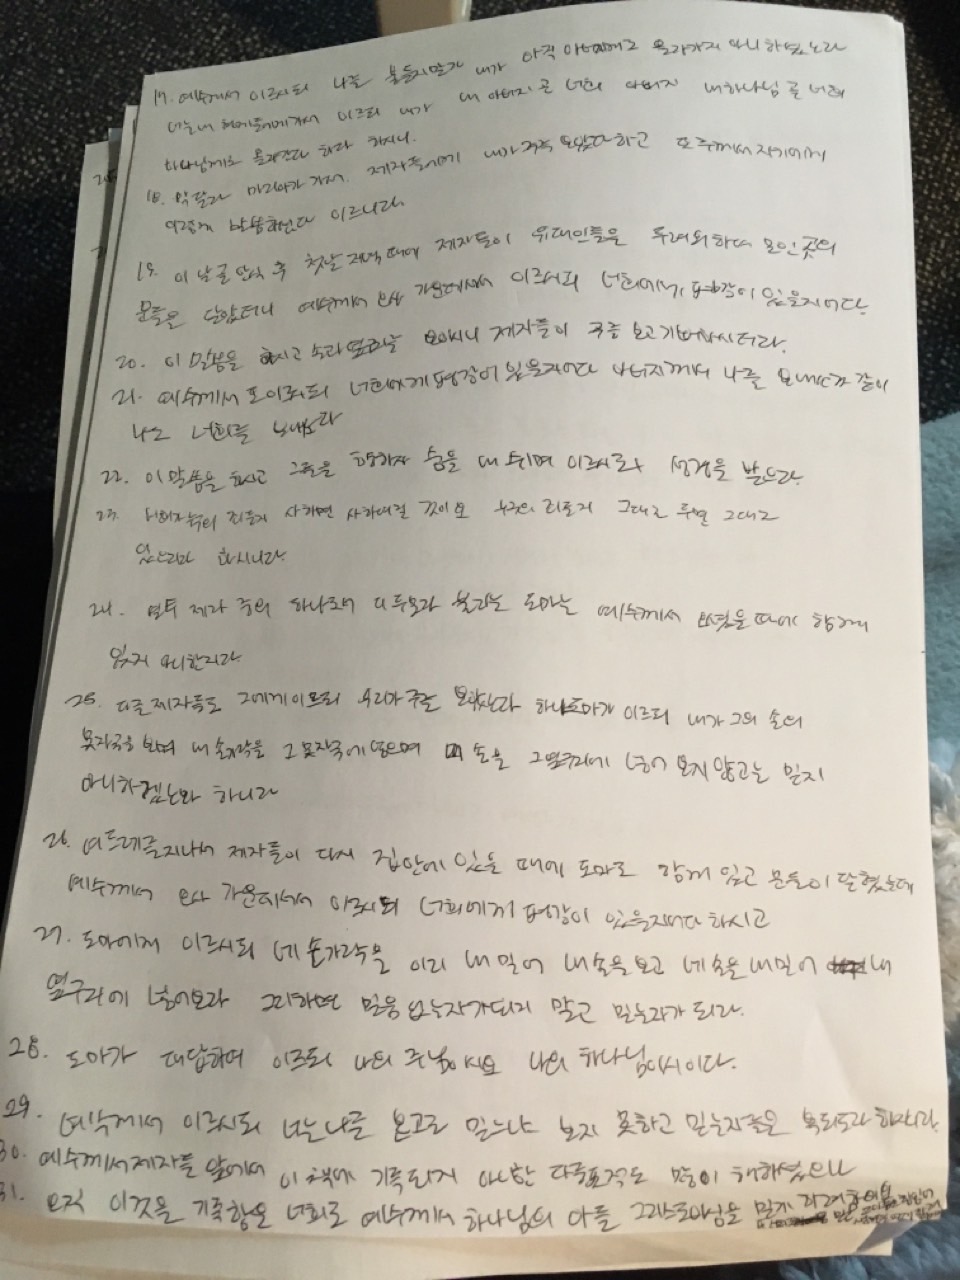 17. 예수께서 이르시되 나를 붙들지말라 내가 아직 아버지께로 올라가지 아니하였노라
너는 내 형제들에게가서 이르되 내가 내 아버지 곧 너희 아버지 내하나님 곧 너희
하나님께로 올라간다 하라 하시니.
18. 막달라 마리아가 가서. 제자들에게 내가 주를 보았다하고 또 주께서 자기에게
이렇게 말씀하셨다 이르니라
19. 이 날 곧 안식 후 첫날 저녁 때에 제자들이 유대인들을 두려워하여 모인 곳의
문들을 닫았더니 예수께서 오사 가운데서서 이르시되 너희에게 평강이 있을지어다.
20. 이 말씀을 하시고 손과 옆구리를 보이시니 제자들이 주를 보고 기뻐하시더라.
21. 예수께서 또 이르시되 너희에게 평강이 있을지어다 아버지께서 나를 보내신것 같이
나도 너희를 보내노라
22. 이 말씀을 하시고 그들을 향하사 숨을 내 쉬며 이르시되 성령을 받으라.
23. 너희가 누구의 죄든지 사하면 사하여질 것이요 누구의 죄든지 그대로 두면 그대로
있으리라 하시니라.
24. 열두 제자 중의 하나로서 디두모라 불리는 도마는 예수께서 오셨을 때에 함께
있지 아니한지라
25. 다른 제자들도 그에게 이르되 우리가 주를 보았노라 하니 도마가 이르되 내가 그의 손의
못자국을 보며 내 손가락을 그 못자국에 넣으며 내 손을 그 옆구리에 넣어 보지 않고는 믿지
아니하겠노라 하니라
26. 여드레를 지나서 제자들이 다시 집안에 있을 때에 도마도 함께 있고 문들이 닫혔는데
예수께서 오사 가운데서서 이르시되 너희에게 평강이 있을지어다 하시고
27. 도마에게 이르시되 네 손가락을 이리 내 밀어 내 손을 보고 네 손을 내 밀어 내
옆구리에 넣어보라 그리하면 믿음 없는자가 되지 말고 믿는자가 되라.
28. 도마가 대답하여 이르되 나의 주님이시요 나의 하나님이시이다.
29. 예수께서 이르시되 너는 나를 본고로 믿느냐 보지 못하고 믿는자들은 복되도다 하시니라.
30. 예수께서 제자들 앞에서 이 책에 기록되지 아니한 다른표적도 많이 행하셨으나
31. 오직 이것을 기록함은 너희로 예수께서 하나님의 아들 그리스도이심을 믿게 하려함이요